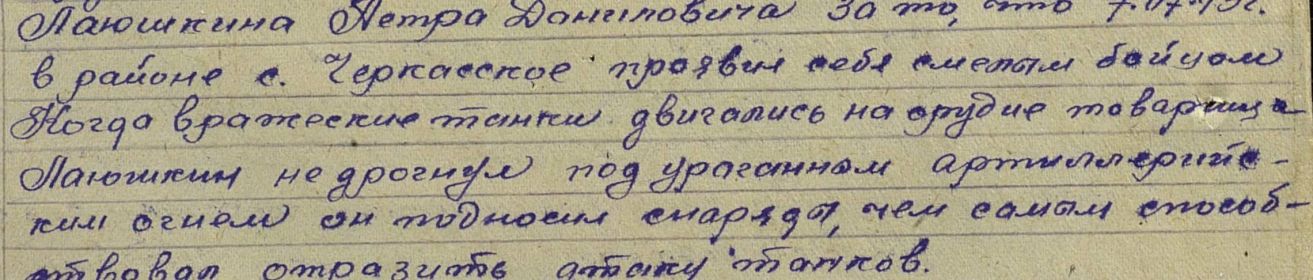 Лаюшкина Петра Даниловича за то, что 7.07.43г.
в районе с. Черкасское проявил себя смелым бойцом
Когда вражеские танки двигались на орудие товарища
Лаюшкин не дрогнул под ураганном артиллерийс-
ким огнем он подносил снаряды, чем самым способ-
ствовал отразить атаку танков.